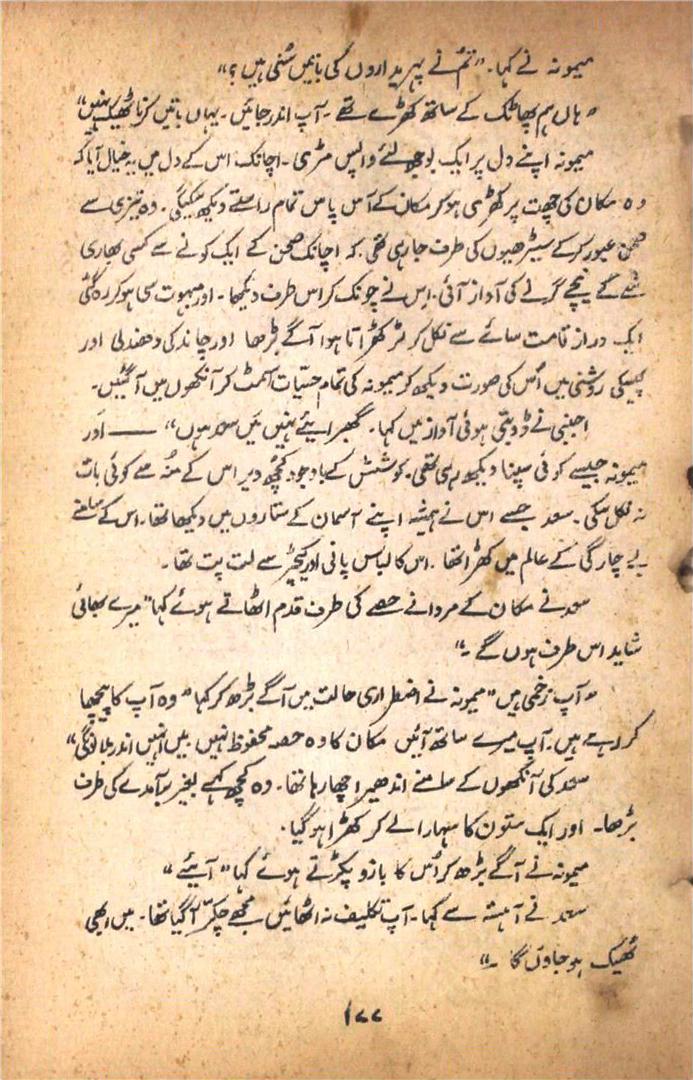 میمونہ نے کہا۔ ”تم نے پہریداروں کی باتیں سُنی ہیں؟“
”ہاں ہم پھاٹک کے ساتھ کھڑے تھے۔ آپ اندر جائیں۔ یہاں باتیں کرنا ٹھیک نہیں“
میمونہ اپنے دل پر ایک بوجھ لئے واپس مڑی۔ اچانک اس کے دل میں یہ خیال آیا کہ
وہ مکان کی چھت پر کھڑی ہو کر مکان کے آس پاس تمام راستے دیکھ سکیگی۔ وہ تیزی سے
صحن عبور کرکے سیڑھیوں کی طرف جا رہی تھی کہ اچانک صحن کے ایک کونے سے کسی بھاری
شے کے نیچے گرنے کی آواز آئی۔ اس نے چونک کر اس طرف دیکھا۔ اور مبہوت سی ہو کر رہ گئی
ایک دراز قامت سائے سے نکل کر لڑکھڑاتا ہوا آگے بڑھا اور چاند کی دھندلی اور
پھیکی روشنی میں اُس کی صورت دیکھ کر میمونہ کی تمام حسّیات سمٹ کر آنکھوں میں آ گئیں۔
اجنبی نے ڈوبتی ہوئی آواز میں کہا۔ گھبرایئے نہیں مَیں سعد ہوں“ —— اَور
میمونہ جیسے کوئی سپنا دیکھ رہی تھی۔ کوشش کے باوجود کچھ دیر اس کے منُہ سے کوئی بات
نہ نکل سکی۔ سعد جسے اس نے ہمیشہ اپنے آسمان کے ستاروں میں دیکھا تھا۔ اس کے سامنے
بے چارگی کے عالم میں کھڑا تھا۔ اس کا لباس پانی اور کیچڑ سے لت پت تھا۔
سعد نے مکان کے مردانے حصے کی طرف قدم اٹھاتے ہوئے کہا ”میرے بھائی
شاید اس طرف ہوں گے۔“
”آپ زخمی ہیں“ میمونہ نے اضطراری حالت میں آگے بڑھ کر کہا ”وہ آپ کا پیچھا
کر رہے ہیں۔ آپ میرے ساتھ آئیں مکان کا وہ حصہ محفوظ نہیں میں انہیں اندر بلا لونگی“
سعد کی آنکھوں کے سامنے اندھیرا چھا رہا تھا۔ وہ کچھ کہے بغیر برآمدے کی طرف
بڑھا۔ اور ایک ستون کا سہارا لے کر کھڑا ہو گیا۔
میمونہ نے آگے بڑھ کر اُس کا بازو پکڑتے ہوئے کہا ”آیئے“
سعد نے آہستہ سے کہا۔ آپ تکلیف نہ اٹھائیں مجھے چکّر آ گیا تھا۔ میں ابھی
ٹھیک ہو جاوں گا۔“
۱۷۷